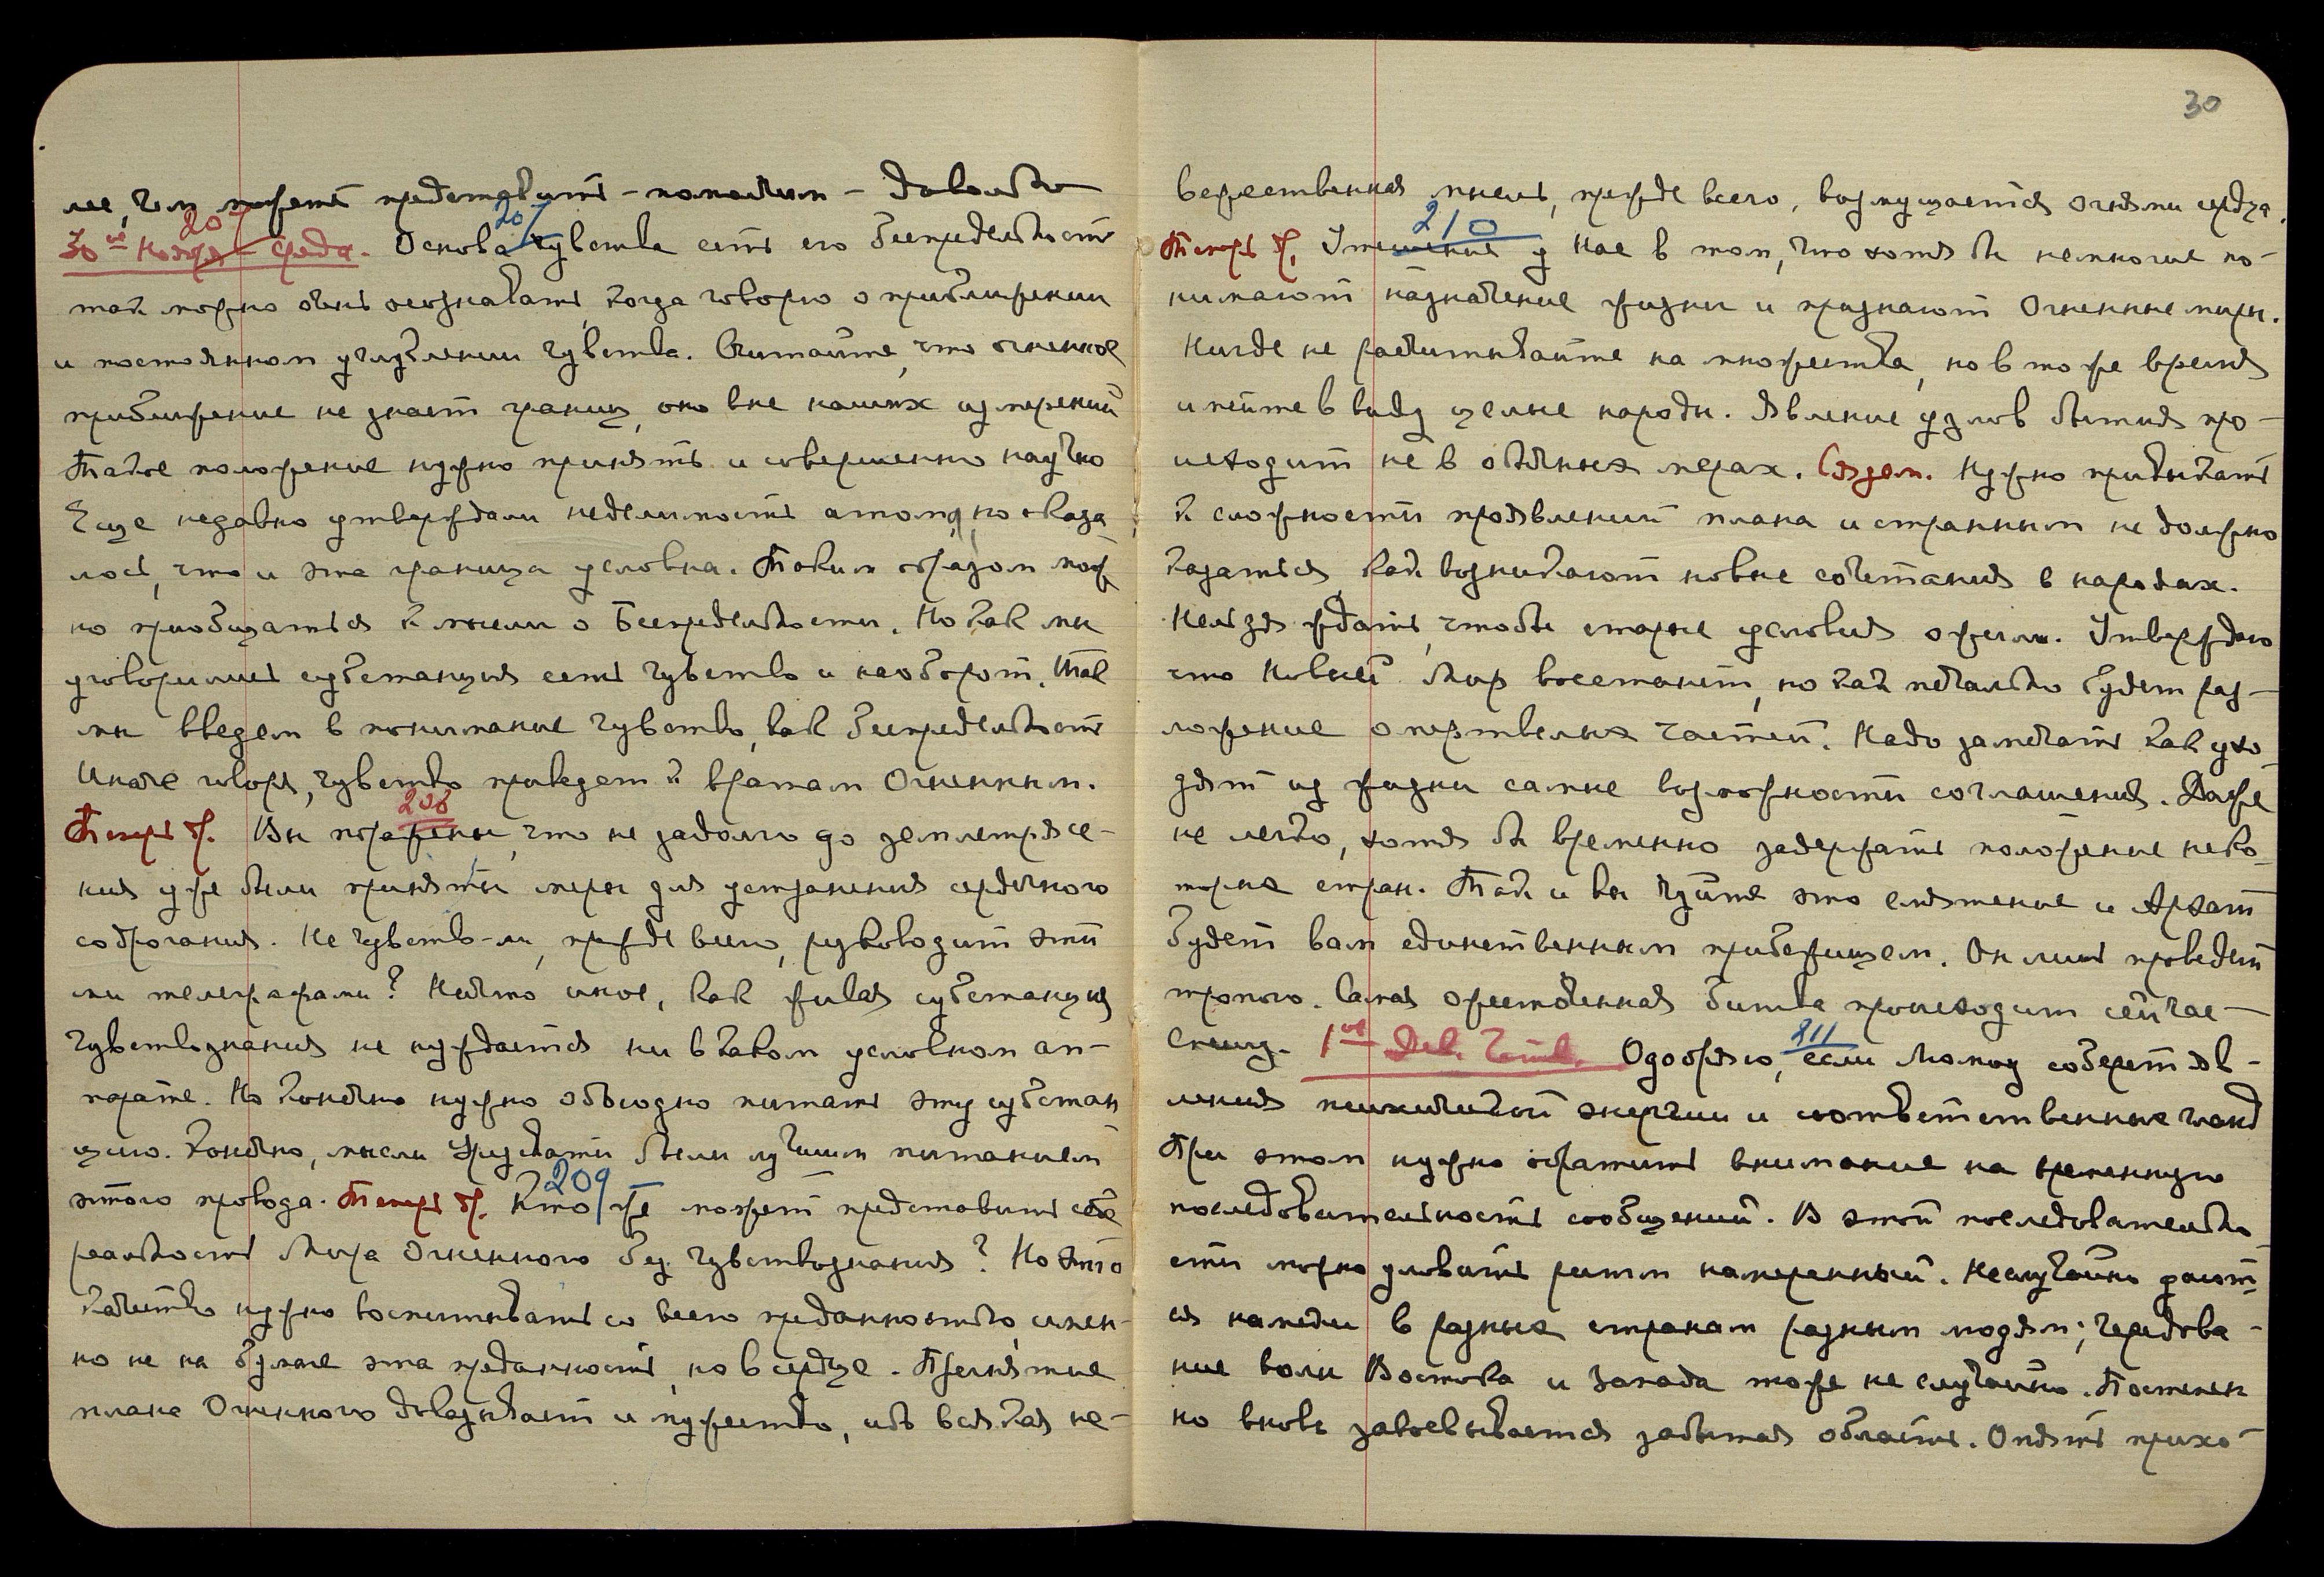 30
лее, чем может представить – помолчим – Довольно
207 207
30 ое Ноября – Среда. Основа чувства есть его беспредельность
так можно ясно осознавать, когда говорю о приближении
и постоянном углублении чувства. Считайте, что огненное
приближение не знает границ, оно вне наших измерений
Такое положение нужно принять и совершенно научно
Еще недавно утверждали неделимость атома, но оказа
лось, что и эта граница условна. Таким образом мож
но приобщаться к мысли о Беспредельности. Но как мы
уговорились субстанция есть чувство и наоборот. Так
мы введем в понимание чувство, как беспредельность
Иначе говоря, чувство приведет к вратам Огненным.
208
Теперь др. Вы поражены, что не задолго до землетрясе-
ния уже были приняты меры для устранения сердечного
содрогания. Не чувство-ли, прежде всего, руководит эти
ми телеграфами? Нечто иное, как живая субстанция
чувствознания не нуждается ни в каком условном ап-
парате. Но конечно нужно обоюдно питать эту субстан
цию. Конечно, мысли Урусвати были лучшим питанием
209
этого провода. Теперь др. Кто же может представить себе
реальность Мира Огненного без чувствознания? Но это
качество нужно воспитывать со всею преданностью, имен-
но не на бумаге эта преданность, но в сердце. Принятие
плана Огненного доказывает и мужество, ибо всякая не-
вежественная мысль, прежде всего, возмущается огнями сердца.
210
Теперь др. Утешение у нас в том, что хотя бы немногие по-
нимают назначение жизни и признают Огненные миры.
Нигде не рассчитывайте на множества, но в то же время
имейте в виду целые народы. Явление узлов бытия про-
исходит не в обычных мерах. Создам. Нужно привыкать
к сложности проявлений плана и странным не должно
казаться как возникают новые сочетания в народах.
Нельзя ждать, чтобы старые условия ожили. Утверждаю
что Новый Мир восстанет, но как печально будет раз-
ложение омертвелых частей. Надо замечать как ухо
дят из жизни самые возможности соглашения. Даже
не легко, хотя бы временно задержать положение неко-
торых стран. Так и вы чуйте это смятение и Архат
будет вам единственным прибежищем. Он лишь проведет
тропою. Самая ожесточенная битва происходит сейчас –
211
1 ое Дек. Четв. Одобряю, если собирет яв-
ления психической энергии и соответственные
При этом нужно обратить внимание на временную
последовательность сообщений. В этой последовательно
сти можно уловить ритм намеренный. Неслучайно дают
ся намеки в разных странам разным людям; чередова-
ние волн Востока и Запада тоже не случайно. Постепен
но вновь завоевывается забытая область. Опять прихо-